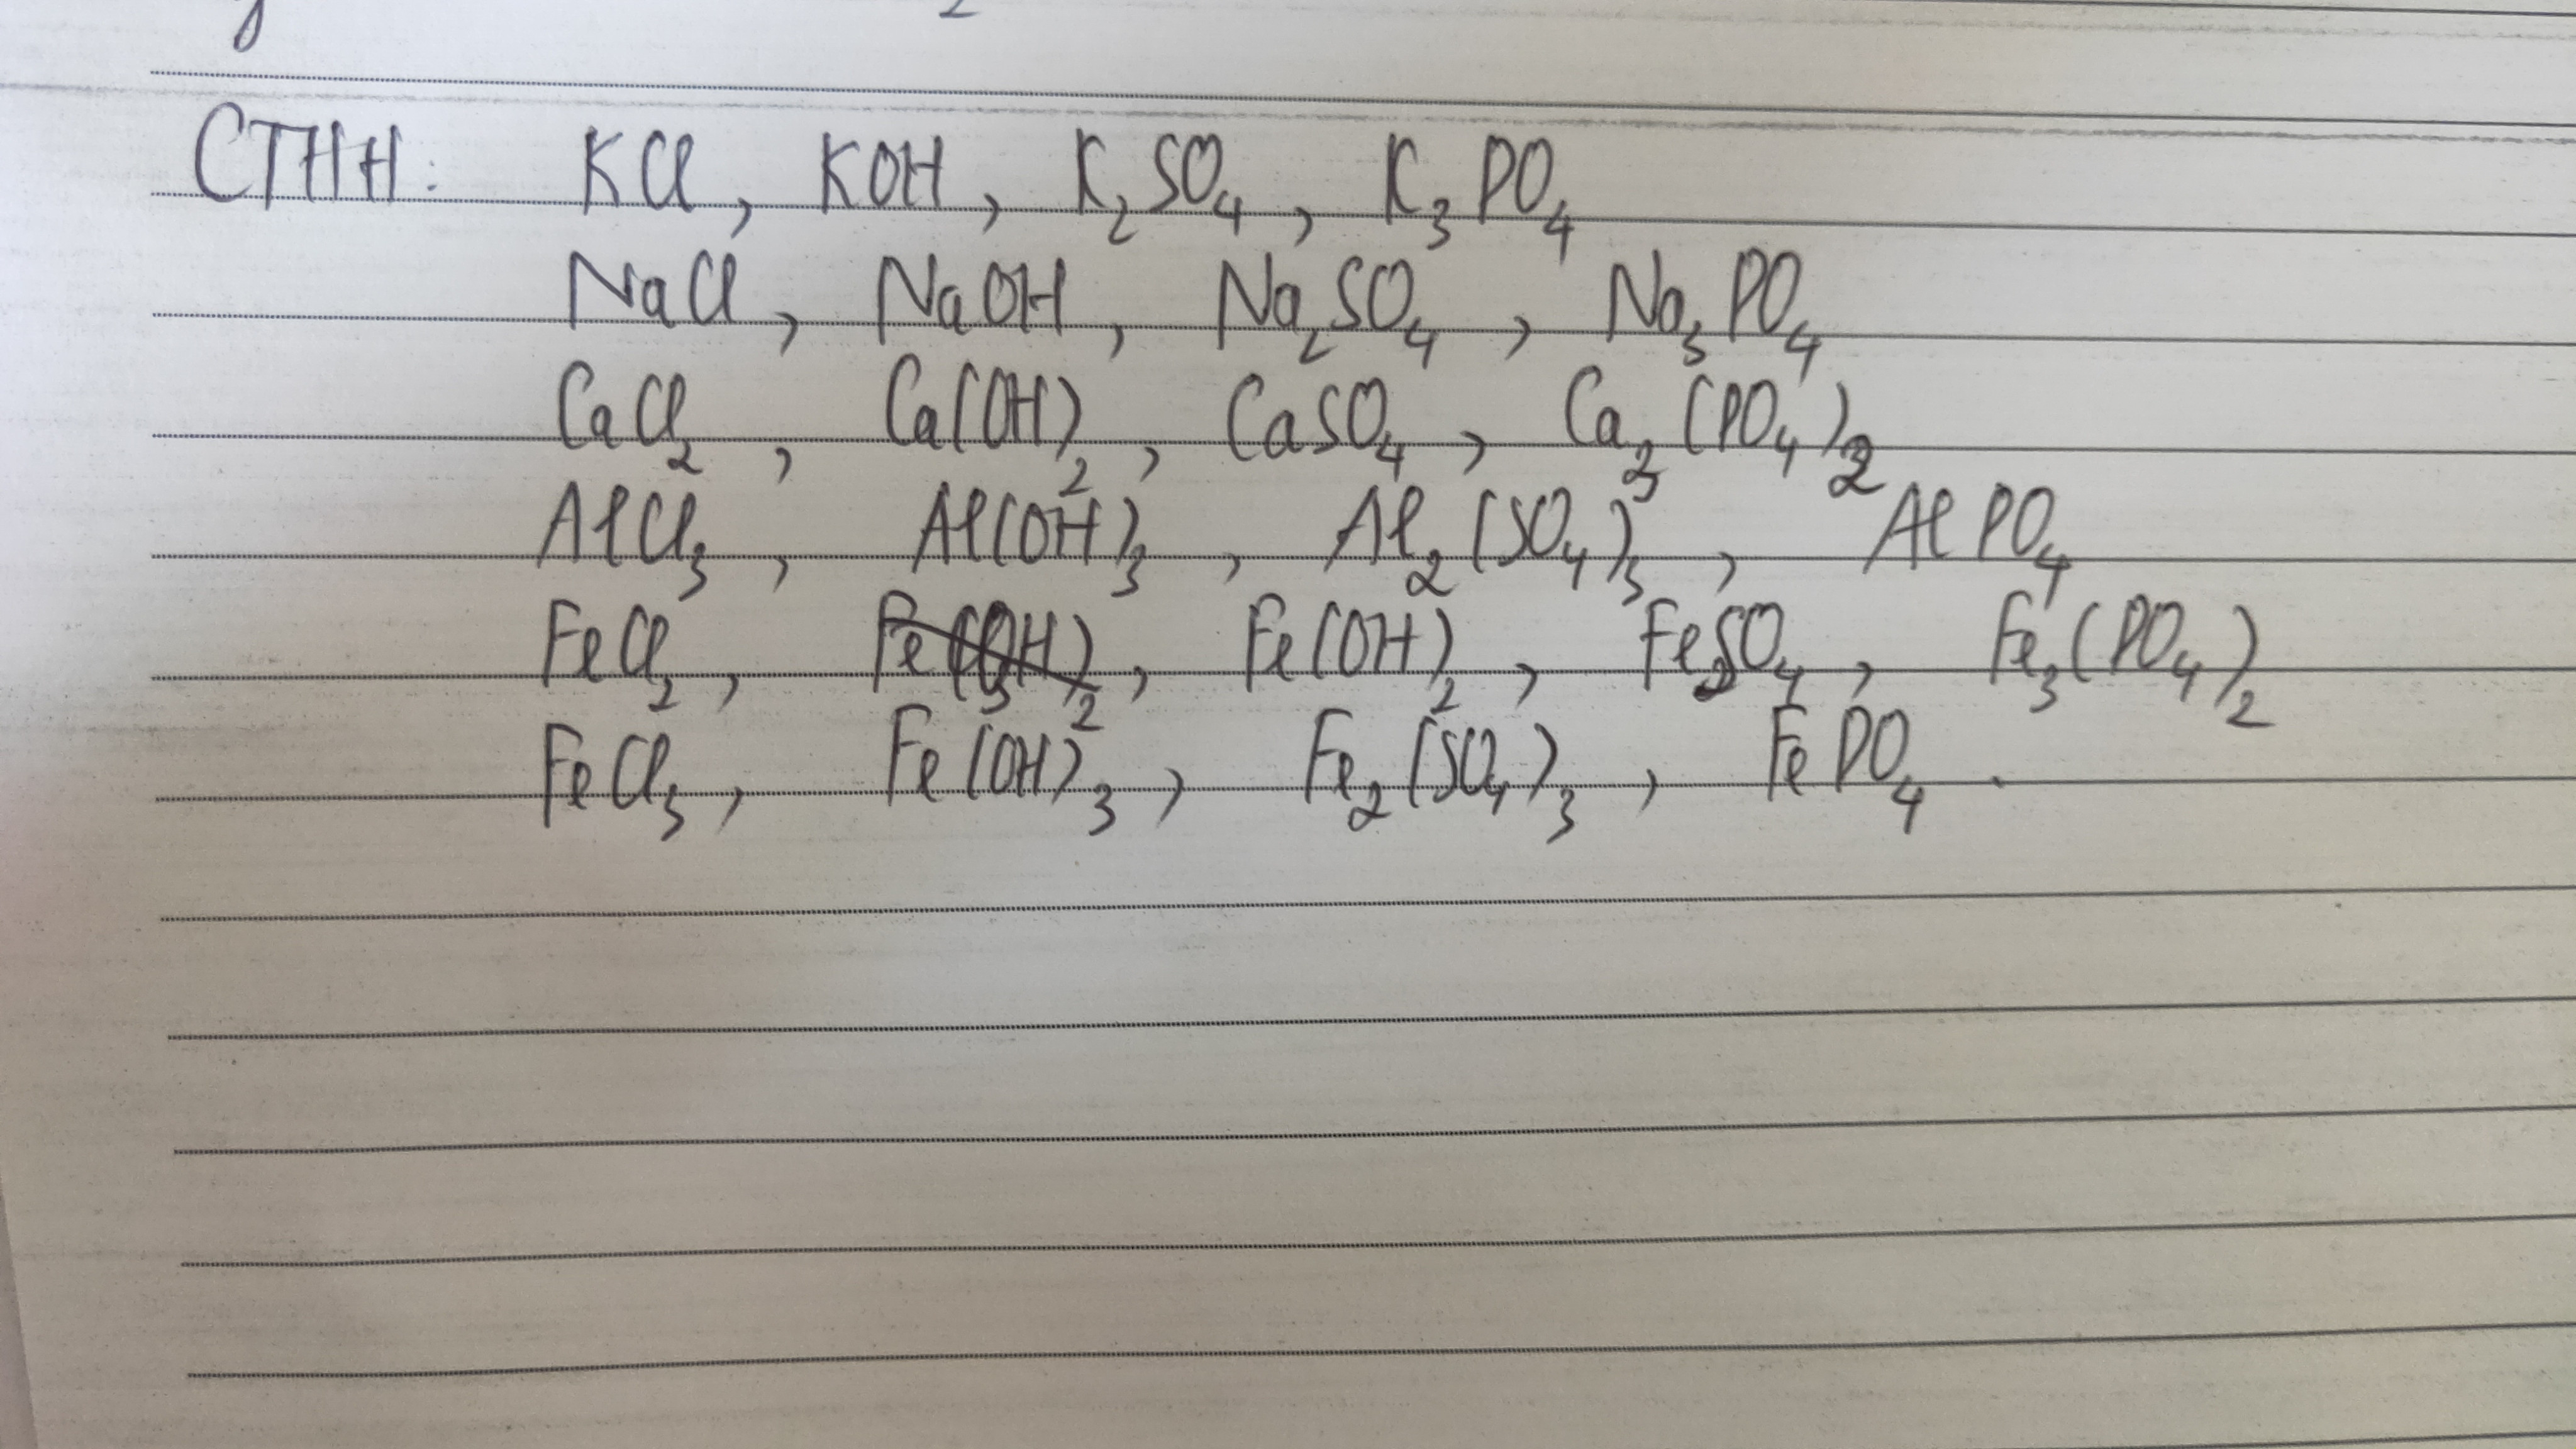 CTHH: KCl, KOH, K₂SO₄, K₃PO₄
NaCl, NaOH, Na₂SO₄, Na₃PO₄
CaCl₂, Ca(OH)₂, CaSO₄, Ca₃(PO₄)₂
AlCl₃, Al(OH)₃, Al₂(SO₄)₃, AlPO₄
FeCl₂, Fe(OH)₂, Fe(OH)₂, FeSO₄, Fe₃(PO₄)₂
FeCl₃, Fe(OH)₃, Fe₂(SO₄)₃, FePO₄.